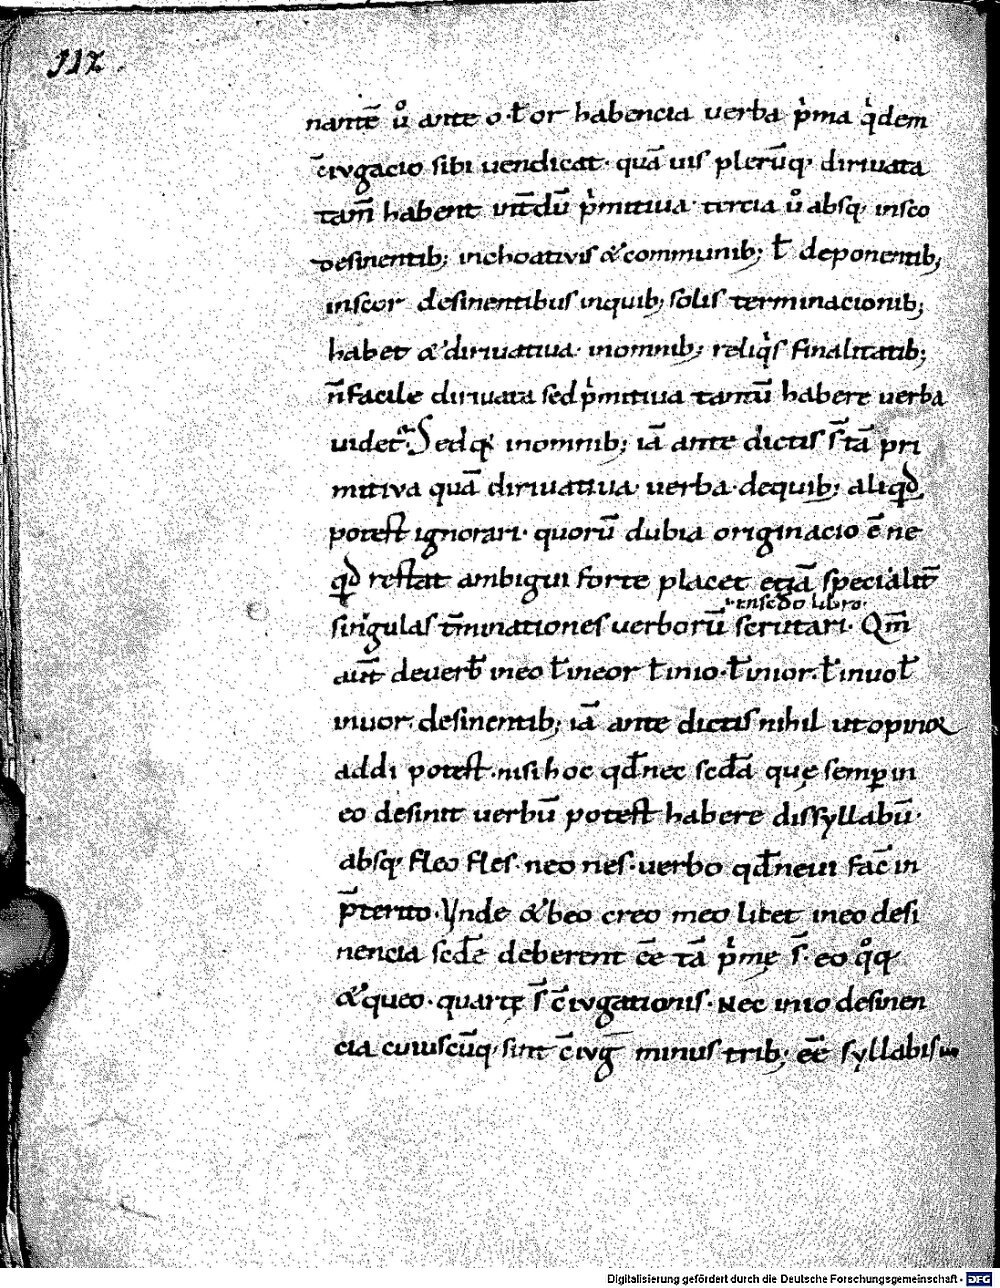 112.
nantē ů ante o ƚ or habencia uerba pͥma qͥdem
c̄iugacio sibi uendicat· quā uis plerūq; diriuata
tam̄ habent int̄dū pͥmitiua· tercia ů absq; insco
desinentib; inchoativis &communib; ƚ deponentib;
inscor desinentibus inquib; solis terminacionib;
habet & diriuatiua· inomnib; reliqͥs finalitatib;
n̄ facile diriuata sed pͥmitiua tantū habere uerba
uidet᷑. Sed qͥ inomnib; iā ante dictis s̄ tā pri
mitiva quā diriuatiua· uerba· dequib; aliqd̵
potest ignorari· quorū dubia originacio ē ne
qd̵ restat ambigui forte placet etiā specialit̄
insed̄o libro·
singulas t̄minationes uerborū scrutari· Qm̄
aut̄ deuerb̄ ineo ƚ ineor ƚ inio· ƚ inior· ƚ inuo ƚ
inuor· desinentib; iā ante dictis nihil ut opinor
addi potest· nisi hoc qd̄ nec scd̄a quę semp̱ in
eo desinit uerbū potest habere dissyllabū·
absq; fleo fles· neo nes· uerbo qd̄ neui fac̄ in
p̄terito· Vnde & beo creo meo licet ineo desi
nencia scd̄e deberent ēē tā pͥmę s̄· eo q̊q;
& queo· quartę s̄ c̄iugationis· Nec inio desinen
cia cuiuscūq; sint c̄iuḡ minus trib; ēē syllabis
Digitalisierung gefördert durch die Deutsche Forschungsgemeinschaft - DFG